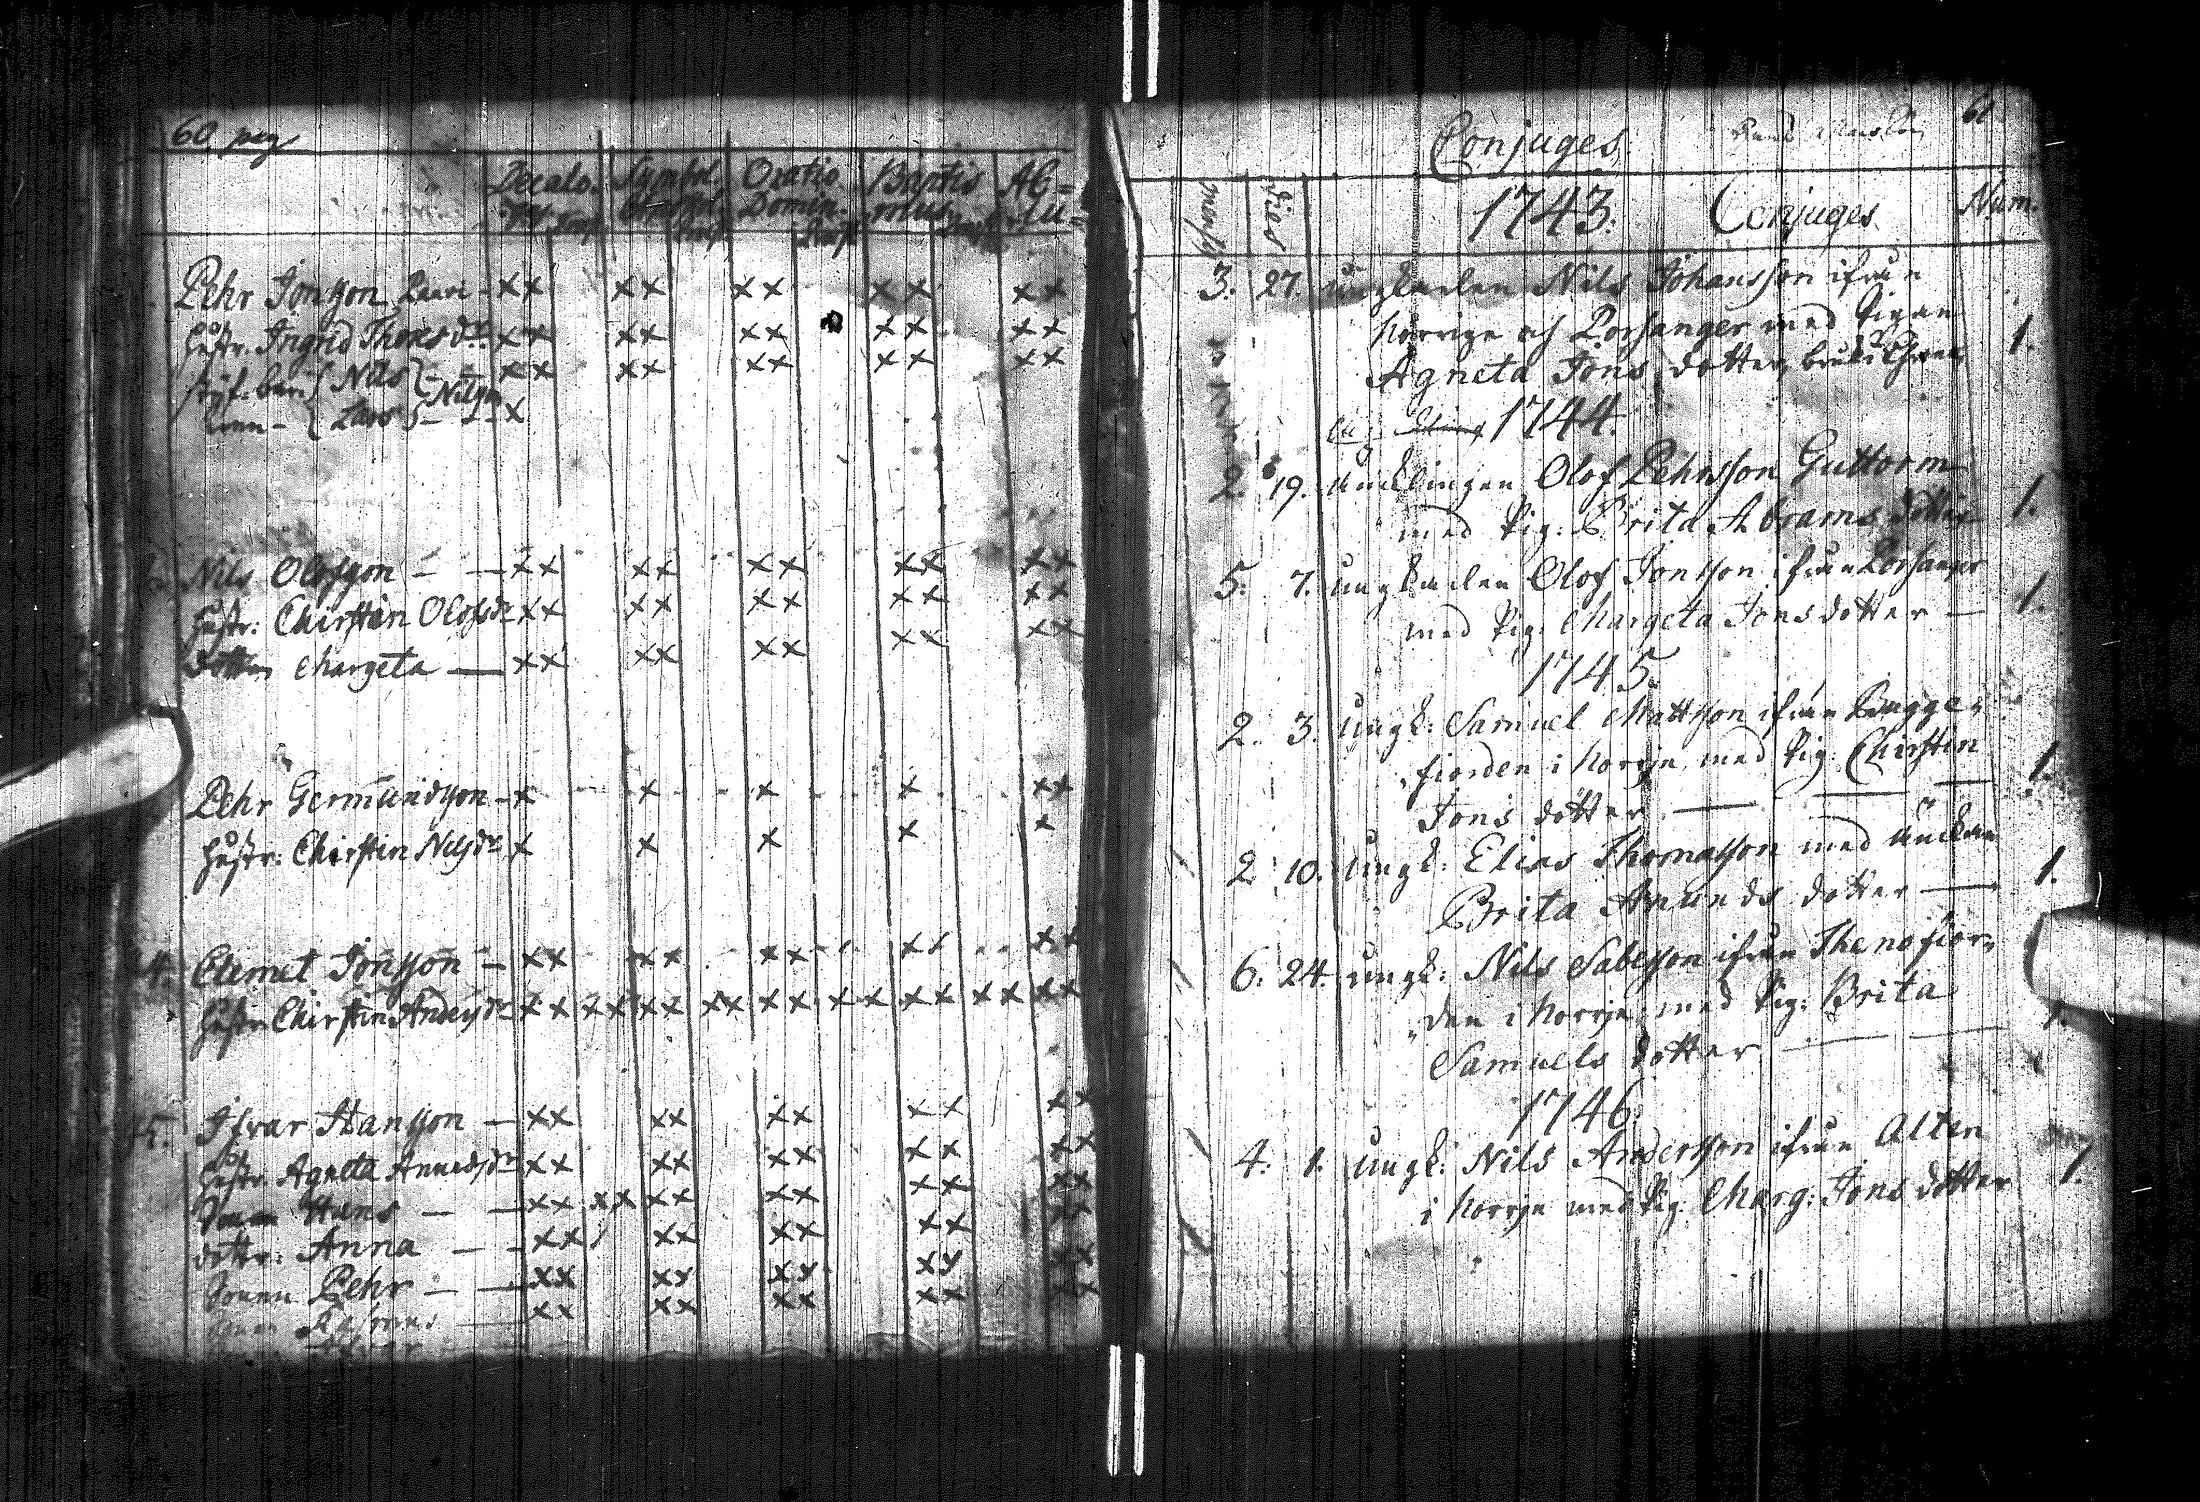 60 pag
Decalo. Symbol. Oratio Baptis Ab=
Domin. mus lu=
Pehr Jonsson Laari - xx xx xx xx xx
hustr. Ingrid Thomsdr xx xx xx xx xx
styf. bar { Nils } - xx xx xx xx xx
nen - { Lars } Nilson - x
Nils Olofsson - - xx xx xx xx xx
hustr: Chirstin Olofsdr xx xx xx xx xx
dotter Margeta - xx xx xx xx xx
Pehr Germundsson - x x x x xx
hustr: Chirstin Nilsdr x x x x x
4. Clemet Jonsson - xx xx xx xx xx
hustr Chirstin Andersdr xx xx xx xx xx xx xx xx xx
5. Ifvar Hansson - xx xx xx xx xx
hustr Agneta Amundsdr xx xx xx xx xx
Sonen Hans - - xx xx xx xx xx xx
dottr: Anna - - xx xx xx xx xx
Sonen Pehr - - xx xx xx xx xx
xx xx xx xx xx
61
Conjuges.
mens dies 1743. Conjuges Num.
3. 27. ungkarlen Nils Johansson ifrån
Norrige och Porsanger med Pigan 1.
Agneta Jons dotter,
1744.
2. 19. Äncklingen Olof Pehrsson Guttorm
med Pig: Brita Abrams dotter 1.
5. 7. ungkarlen Olof Jonsson ifrån Porsanger
med Pig: Margeta Jonsdotter - 1.
1745.
2. 3. ungk: Samuel Mattsson ifrån
fiorden i Norrje med Pig: Chirstin 1.
Jons dotter -
2 10. ungk: Elias Thomasson med änckan
Brita Amunds dotter - 1.
6. 24. ungk: Nils Sabesson ifrån Thenofior-
den i Norrje med Pig: Brita 1.
Samuels dotter -
1746.
4. 1. ungk: Nils Andersson ifrån Alten
i Norrje med Pig: Marg: Jons dotter 1.